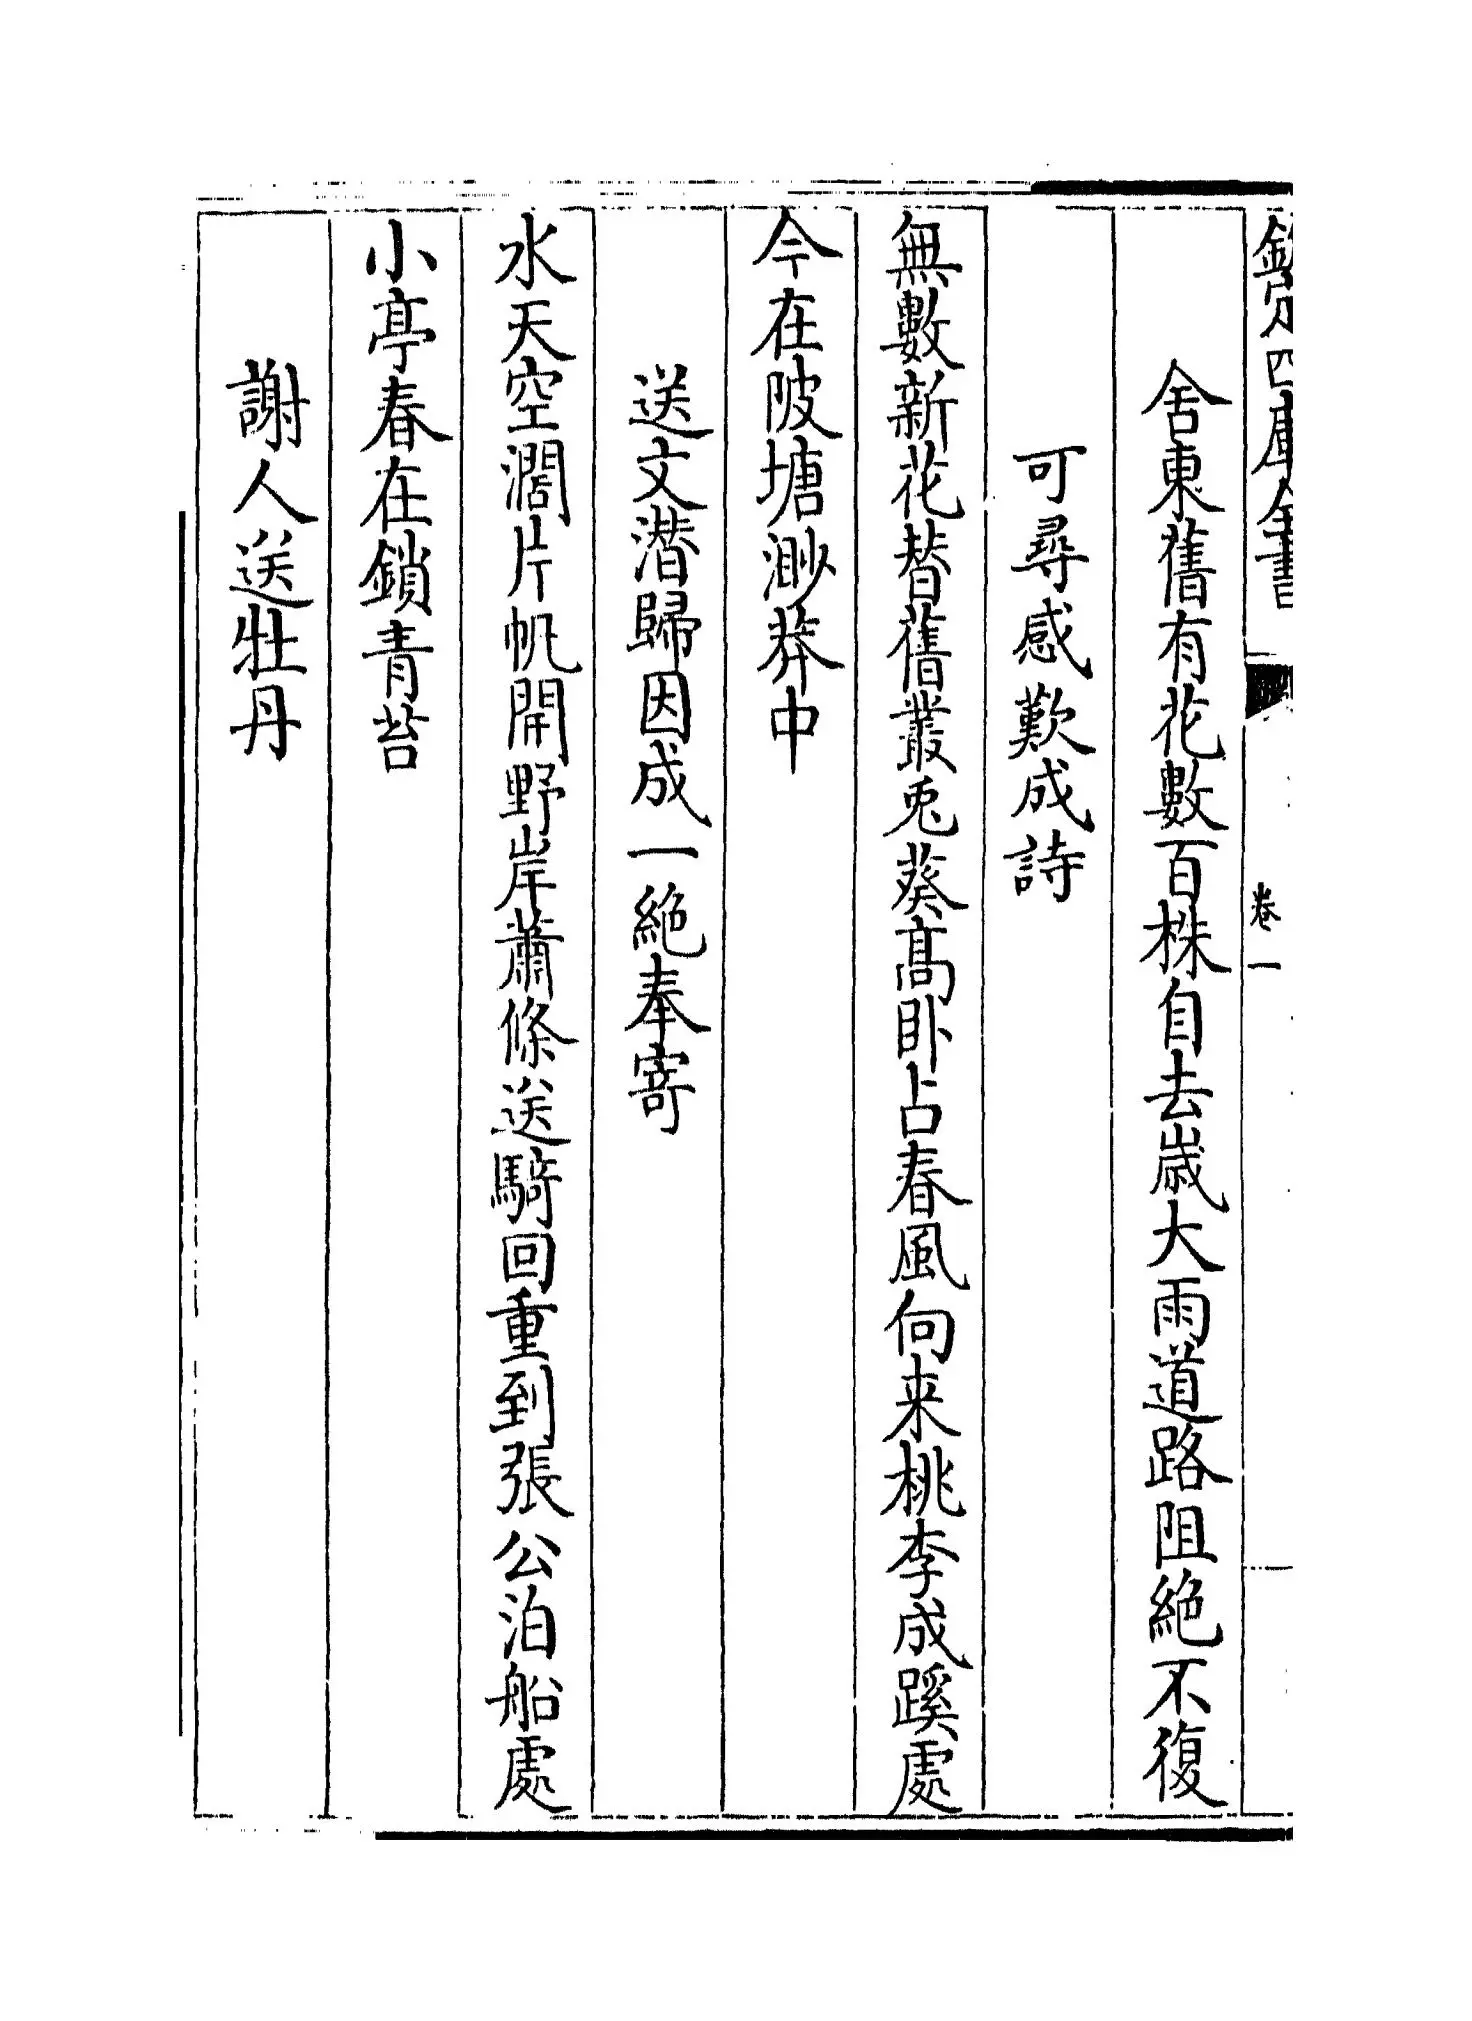 欽定四庫全書
卷一
舍東舊有花數百株自去歲大雨道路阻絕不復
可尋感歎成詩
無數新花替舊叢兎葵高卧占春風向来桃李成蹊處
今在陂塘渺莽中
送文潜歸因成一絕奉寄
水天空濶片帆開野岸蕭條送騎回重到張公泊船處
小亭春在鎖青苔
謝人送牡丹